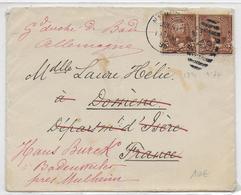 Gd duché de Bade
Allemagne
Mdlle Laure Hélie
à
Domène
Départmt d'Isère
Hans Burck
France
Badenweiler
près Mulheim